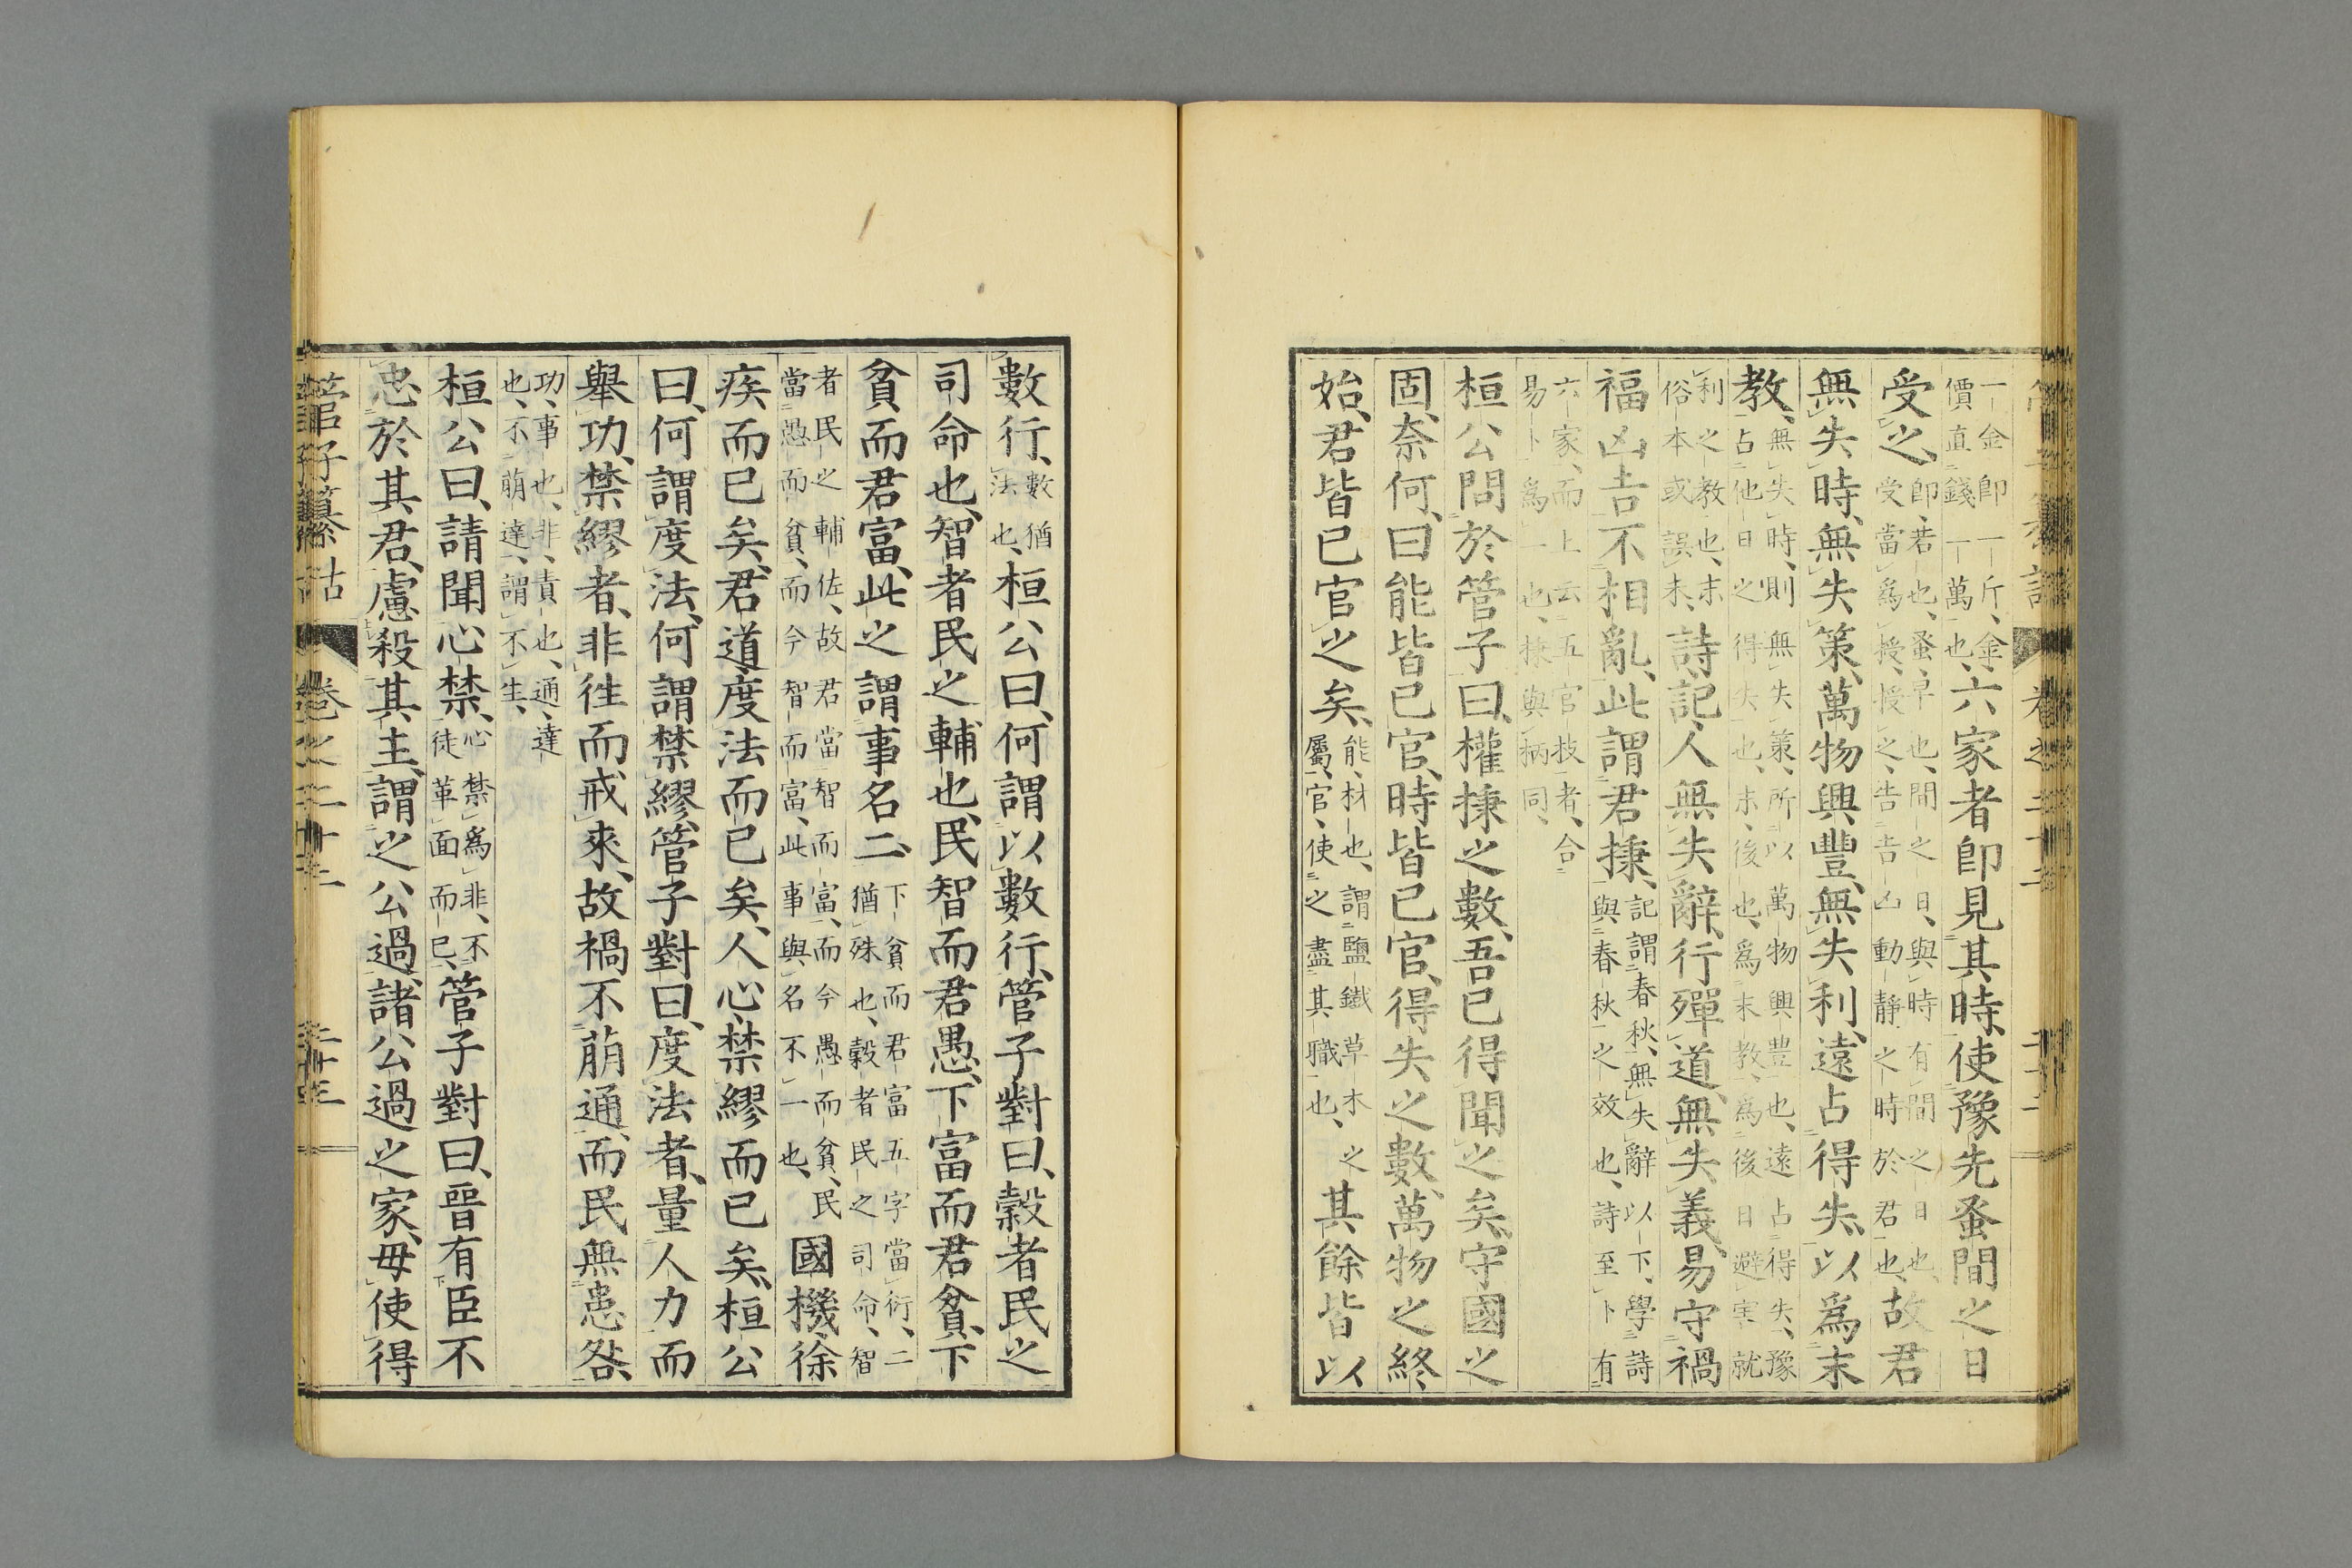 一金即一斤、金
價直錢一萬也、
六家者即見其時、使豫先蚤間之日
受之、
即、若也、蚤、早也、間之日、與時有間之日也、
受當爲授、授之、告吉凶動靜之時於君也、
故君
無失時、無失策、萬物興豐、無失利、遠占得失、以爲末
教、
無失時、則無失策、所以萬物興豊也、遠占得失、豫
占他日之得失也、末、後也、爲末教、爲後日避害就
利之教也、末
俗本或誤未、
詩記人無失辭、行殫道、無失義、易守禍
福凶吉不相亂、此謂君棅、
記謂春秋、無失辭以下、學詩
與春秋之效也、詩至卜有
六家、而上云五官技者、合
易卜爲一也、棅與柄同、
桓公問於管子曰、權棅之數、吾已得聞之矣、守國之
固、奈何、曰能皆已官、時皆已官、得失之數、萬物之終
始、君皆已官之矣、
能、材也、謂鹽鐵草木之
屬、官、使之盡其職也、
其餘皆以
數行、
數猶
法也、
桓公曰、何謂以數行、管子對曰、穀者民之
司命也、智者民之輔也、民智而君愚、下富而君貧、下
貧而君富、此之謂事名二、
下貧而君富五字當衍、二
猶殊也、穀者民之司命、智
者民之輔佐、故君當智而富、而今愚而貧、民
當愚而貧、而今智而富、此事與名不一也、
國機、徐
疾而已矣、君道、度法而已矣、人心、禁繆而已矣、桓公
曰、何謂度法、何謂禁繆、管子對曰、度法者、量人力而
舉功、禁繆者、非往而戒來、故禍不萠通、而民無患咎、
功、事也、非、責也、通、達
也、不萠達、謂不生、
桓公曰、請聞心禁、
心禁爲非、不
徒革面而已、
管子對曰、晉有臣不
忠於其君、慮殺其主、謂之公過、諸公過之家、毋使得
管子纂詁
卷之二十二
二十三